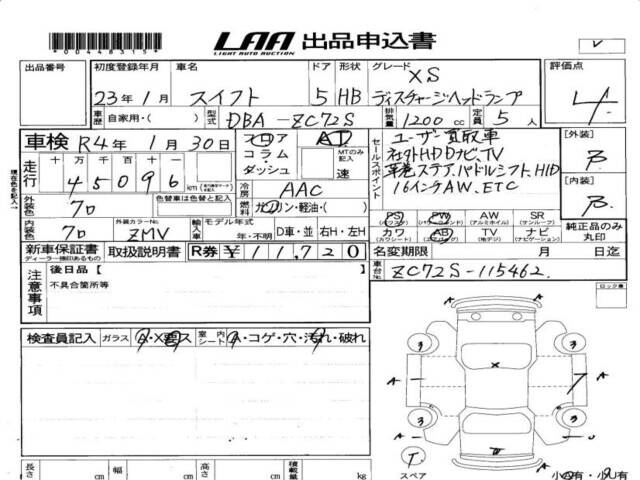 *00448315*
LAA 出品申込書
LIGHT AUTO AUCTION
出品番号 初度登録年月 車名 ドア 形状 グレード 評価点
XS
23年1月 スイフト 5 HB ディスチャージヘッドランプ 4
車歴 自家用・( ) 型式 DBA-ZC72S 排気量 1200cc 定員 5人
車検 R4年1月30日 フロア・コラム・ダッシュ AT MTのみ記入 速
セールスポイント ユーザー買取車
社外HDDナビ、TV
革巻ステア、パドルシフト、HID
16インチAW、ETC
【外装】 B
【内装】 B
現在色を記入→
走行 十 万 千 百 十
45096 km
冷房 AAC
外装色 色替車は色替と記入 燃料 ガソリン・軽油・( )
内装色 外装カラーNo. ZMV 輸入車 モデル年式 年・不明 D車・並 右H・左H
PS (パワーステアリング) PW (パワーウィンドウ) AW (アルミホイル) SR (サンルーフ)
カワ (カワシート) AB (エアバッグ) TV (地デジ) ナビ (ナビゲーション)
純正品のみ丸印
新車保証書 取扱説明書 R券 ¥11,720
ディーラー捺印あるもの
名変期限 月 日迄
車台No. ZC72S-115462
注意事項 後日品【 】
不具合箇所等
ロック車
検査員記入 ガラス A・X要ス 室内シート A・コゲ・穴・汚れ・破れ
A A A A A
3 3 3 3
X W
T スペア
長さ cm 幅 cm 高さ cm 積載量 kg